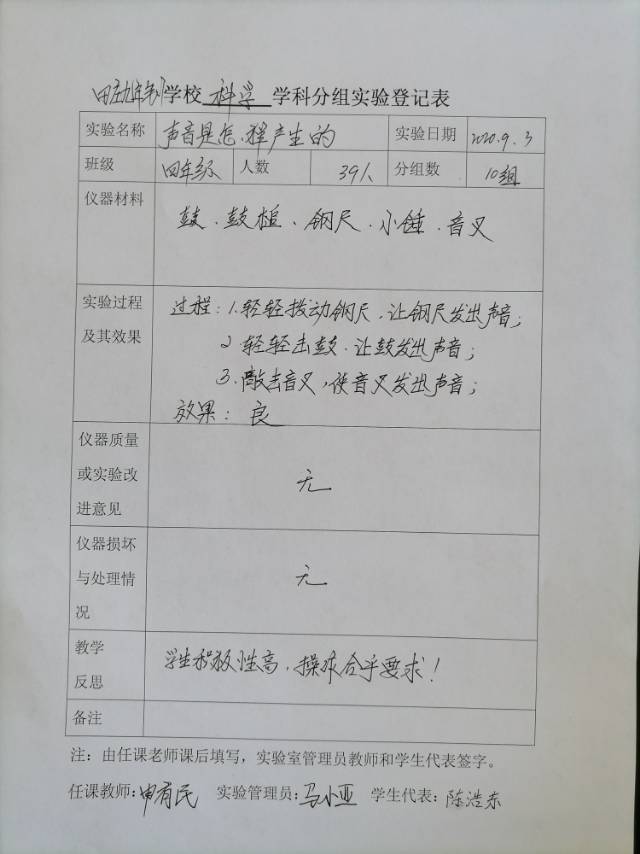 田庄九年制学校 科学 学科分组实验登记表
实验名称 声音是怎样产生的 实验日期 2020.9.3
班级 四年级 人数 39人 分组数 10组
仪器材料 鼓、鼓槌、钢尺、小锤、音叉
实验过程及其效果 过程：1.轻轻拨动钢尺，让钢尺发出声音；
2.轻轻击鼓，让鼓发出声音；
3.敲击音叉，使音叉发出声音；
效果：良
仪器质量或实验改进意见 无
仪器损坏与处理情况 无
教学反思 学生积极性高，操作合乎要求！
备注
注：由任课老师课后填写，实验室管理员教师和学生代表签字。
任课教师：申有民 实验管理员：马小亚 学生代表：陈浩东